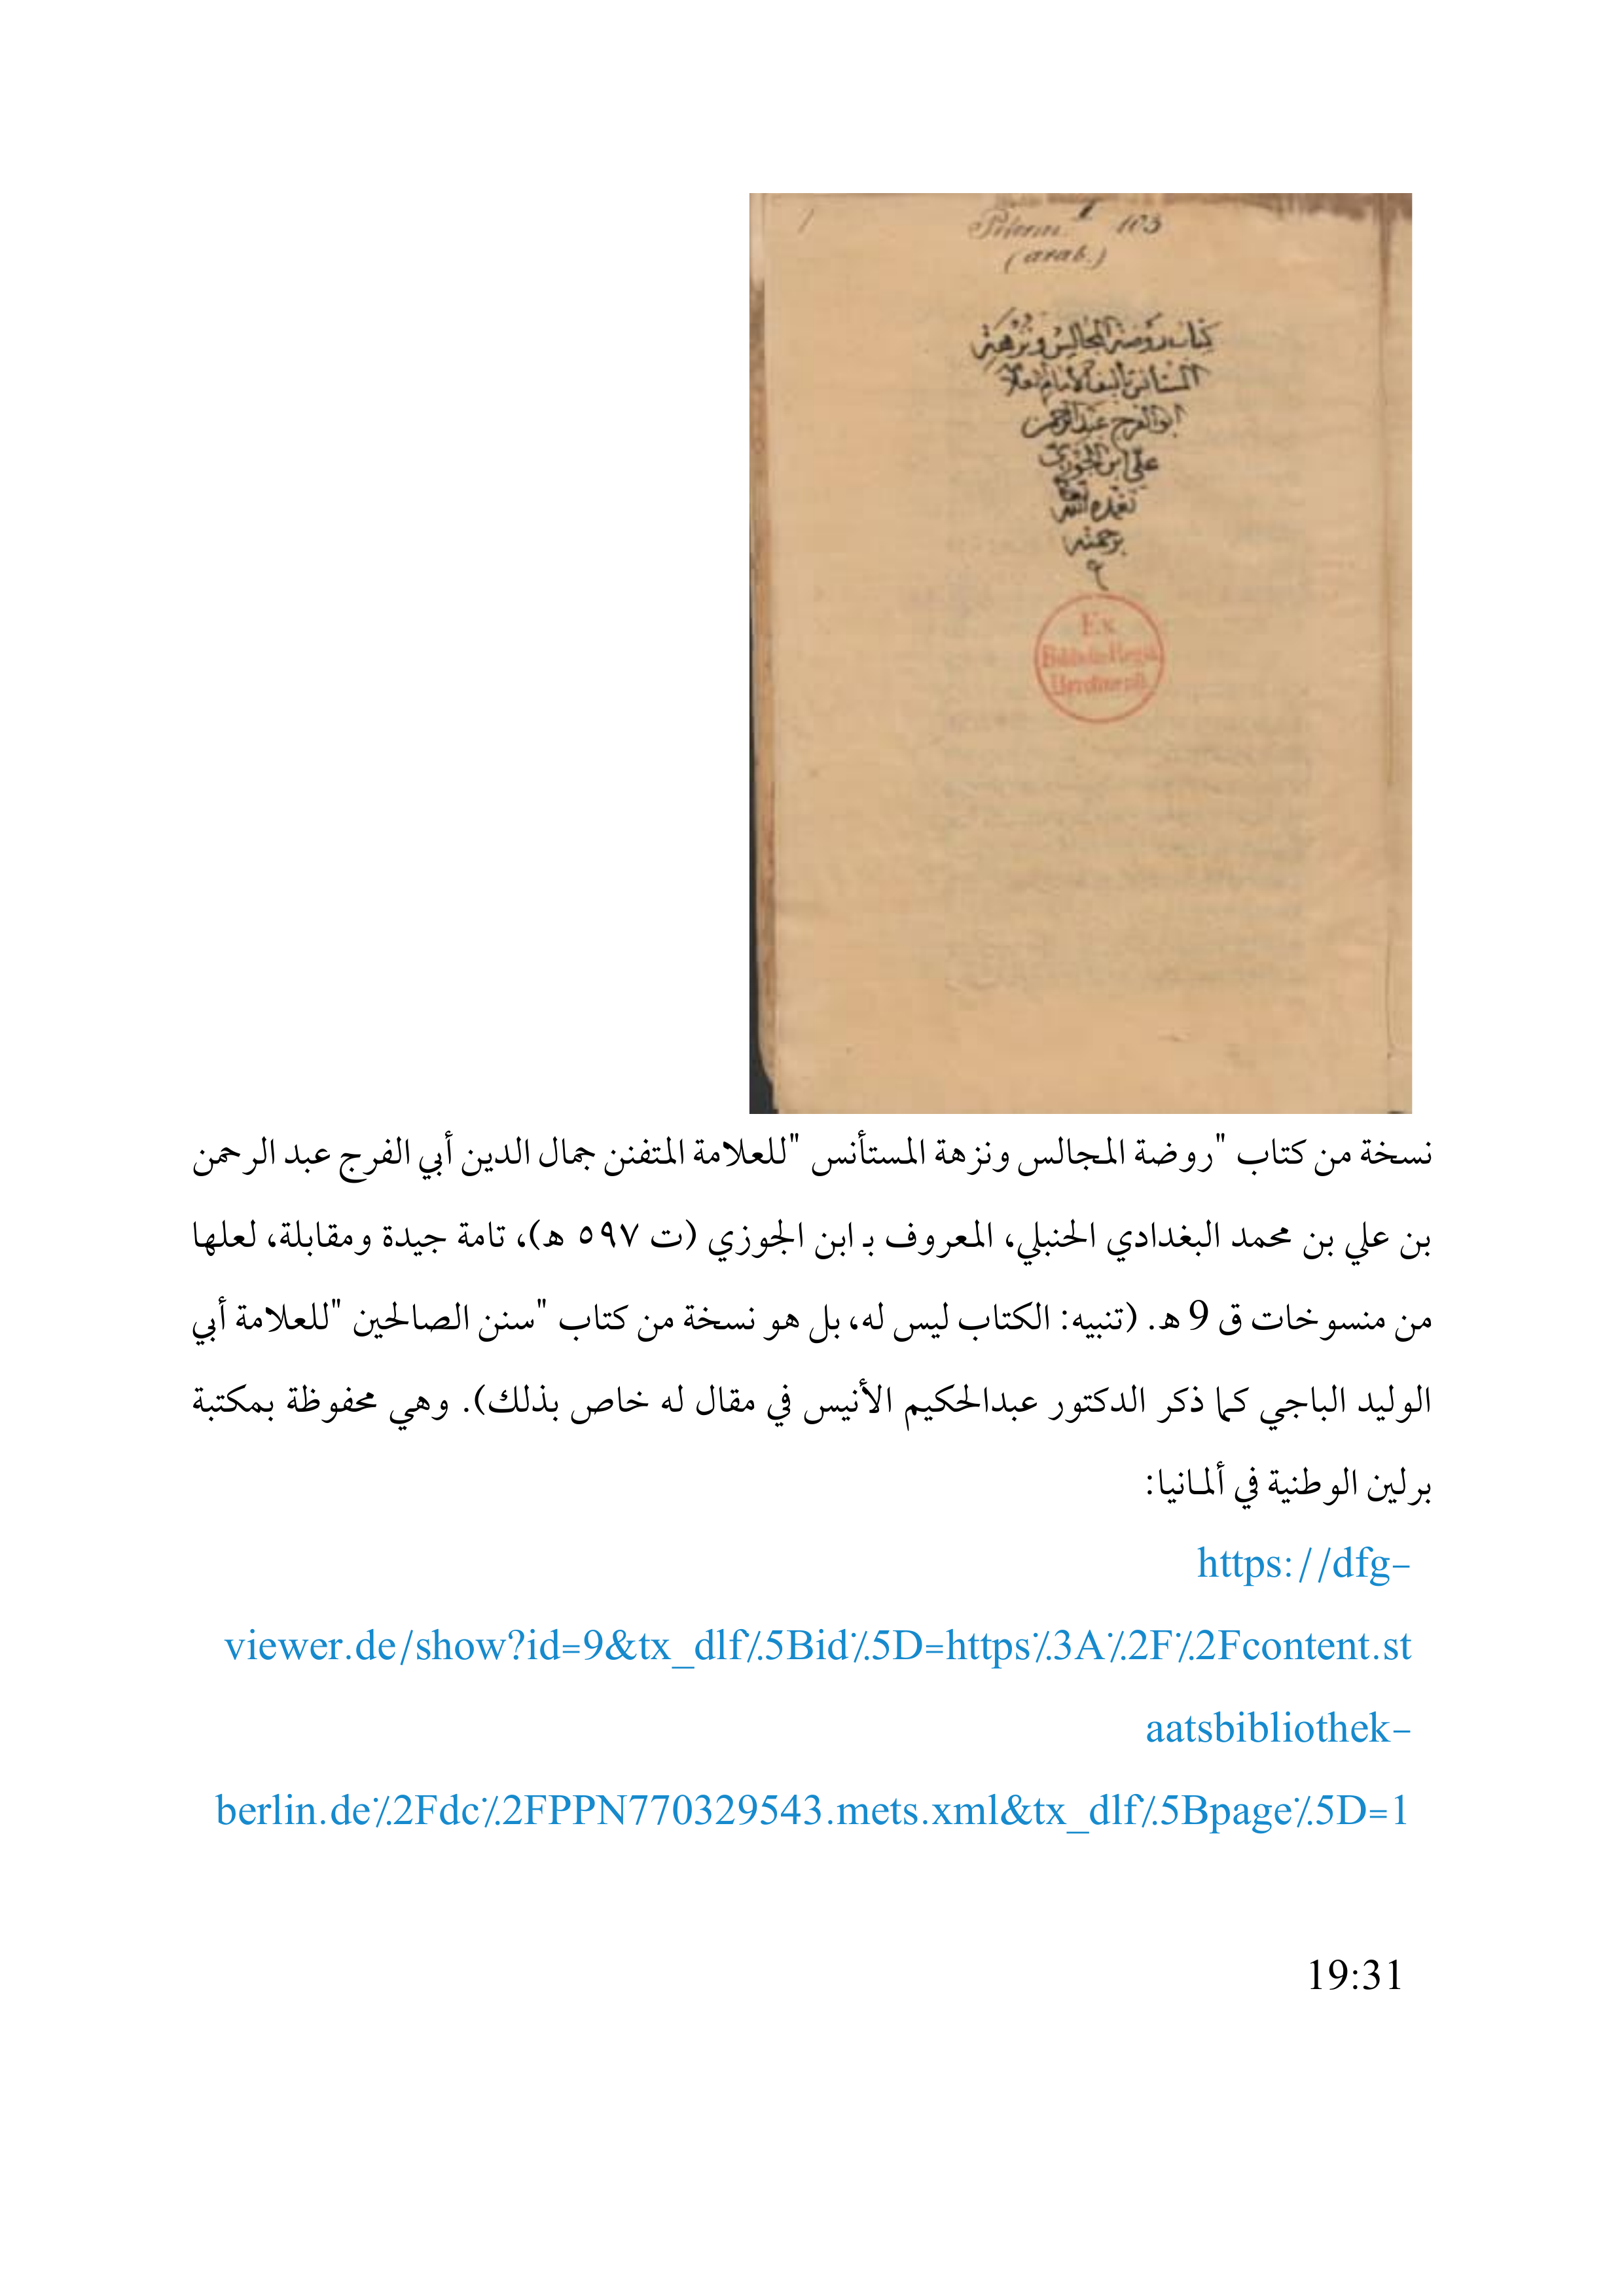 1
103
(arab.)
كتاب روضة المجالس ونزهة
المستانس تاليف الامام العلا
ابو الفرج عبد الرحمن
علي ابن الجوزي
تغمده الله تعالى
برحمته
Ex
نسخة من كتاب "روضة المجالس ونزهة المستأنس "للعلامة المتفنن جمال الدين أبي الفرج عبد الرحمن
بن علي بن محمد البغدادي الحنبلي، المعروف بـ ابن الجوزي (ت ٥٩٧ هـ)، تامة جيدة ومقابلة، لعلها
من منسوخات ق 9 هـ. (تنبيه: الكتاب ليس له، بل هو نسخة من كتاب "سنن الصالحين "للعلامة أبي
الوليد الباجي كما ذكر الدكتور عبدالحكيم الأنيس في مقال له خاص بذلك). وهي محفوظة بمكتبة
برلين الوطنية في ألمانيا:
https://dfg-
viewer.de/show?id=9&tx_dlf%5Bid%5D=https%3A%2F%2Fcontent.st
aatsbibliothek-
berlin.de%2Fdc%2FPPN770329543.mets.xml&tx_dlf%5Bpage%5D=1
19:31